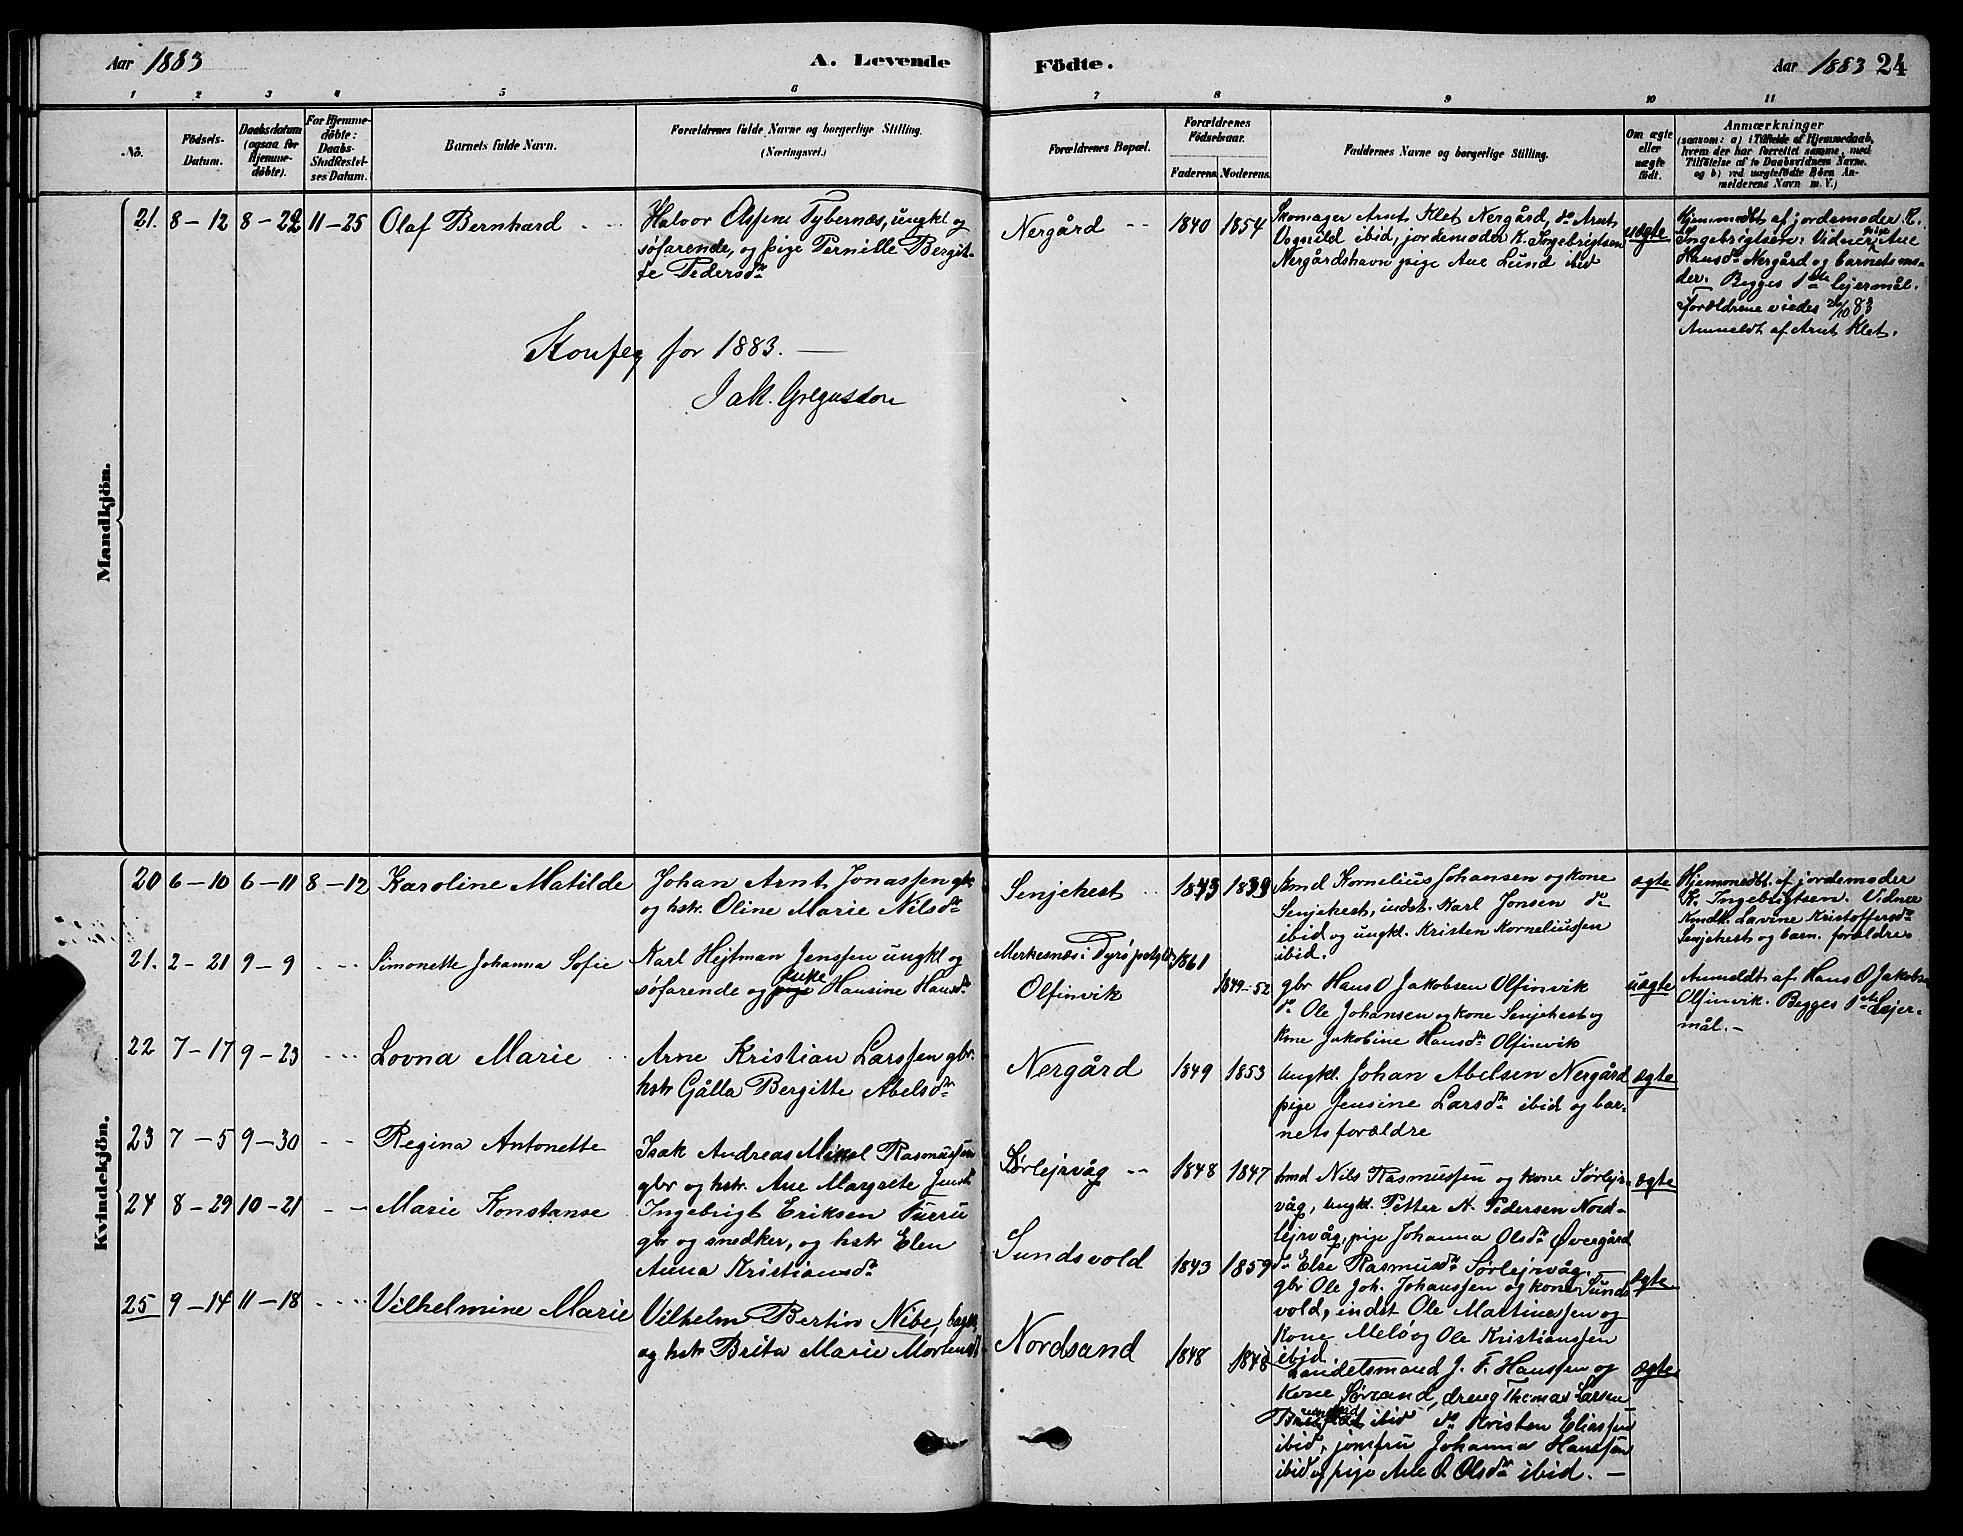 Aar 1883
A. Levende
Födte.
Aar 1883 24
1 2 3 4 5 6 7 8 9 10 11
No.
Födsels-
Datum.
Daabsdatum
(ogsaa for
Hjemme-
döbte).
For Hjemme-
döbte:
Daabs-
Stadfæstel-
ses Datum.
Barnets fulde Navn.
Forældrenes fulde Navne og borgerlige Stilling.
(Næringsvei.)
Forældrenes Bopæl.
Forældrenes
Födselsaar.
Faderens. Moderens.
Faddernes Navne og borgerlige Stilling.
Om ægte
eller
uægte
födt.
Anmærkninger
(saasom: a) i Tilfælde af Hjemmedaab,
hvem der har forrettet samme, med
Tilföielse af to Daabsvidners Navne.
og b) ved uægtefödte Börn An-
melderens Navn m. V.)
Mandkjön.
21. 8-12 8-22 11-25 Olaf Bernhard
Halvor Olssen Tybernæs, ungkl og
søfarende, og pige Pernille Bergit-
te Pedersdr
Nergård 1840 1854
Skomager Arnt Klet Nergård, do Arnt
ibid, jordemoder K. Ingebrigtsen
Nergårdshavn pige Ane Lund ibid
uægte
Hjemmedbt af jordemoder K.
Ingebrigtsen. Vidner pige Ane
Hansdr Nergård og barnets mo-
der. Begges 1ste lejermål.
Forældrene viedes 26/10 83
Anmeldt af Arnt Klet.
for 1883.
Kvindekjön.
20 6-10 6-11 8-12 Karoline Matilde
Johan Arnt Jonassen gbr
og hstr. Oline Marie Nilsdr
Senjehest 1843 1839
Kmd Kornelius Johansen og kone
Senjehest, indst. Karl Jonsen do
ibid og ungkl. Kristen Korneliussen
ibid.
ægte
Hjemmedbt. af jordemoder
K. Ingebrigtsen. Vidner
Kmdk. Lavine Kristoffersdr
Senjehest og barn. forældre
21. 2-21 9-9 Simonette Johanna Sofie
Karl Hejtman Jenssen ungkl og
søfarende og pige enke Hansine Hansdr
Merkesnæs i Tyrø
Olfinvik
1861
1849-52
gbr Hans O Jakobsen Olfinvik
do Ole Johansen og kone Senjehest og
kone Jakobine Hansdr Olfinvik
uægte
Anmeldt af Hans O Jakobsen
Olfinvik. Begges 1ste Lejer-
mål.-
22 7-17 9-23 Lovna Marie
Arne Kristian Larssen gbr.
hstr Gålla Bergitte Abelsdr
Nergård 1849 1853
Ungkl. Johan Abelsen Nergård
pige Jensine Larsdr ibid og bar-
nets forældre
ægte
23 7-5 9-30 Regina Antonette
Isak Andreas Mikal Rasmussen
gbr og hstr. Ane Margrete Jensdr
Sørlejrvåg 1848 1847
kmd Nils Rasmussen og kone Sørlejr-
våg, ungkl. Petter N. Pedersen Nord-
lejrvåg, pige Johanna Olsdr Øvergård
do Else Rasmusdr Sørlejrvåg.
ægte
24 8-29 10-21 Marie Konstanse
Ingebrigt Eriksen Furru
gbr og snedker, og hstr Elen
Anna Kristiansdr
Sundsvold 1843 1859
gbr Ole Joh. Johanssen og kone Sunds
vold, indst Ole Martinussen og
kone Melø og Ole Kristianssen
ibid
ægte
25 9-14 11-18 Vilhelmine Marie
Vilhelm Bertin Nibe,
og hstr Brita Marie Mortensdr
Nordsand 1848 1848
Landetsmand J. F. Hanssen og
kone Sørsand, dreng Thomas Larsen
ibid do Kristen Eliassen
ibid, jomfru Johanna Hanssen
ibid og pige Ane O. Olsdr ibid.-
ægte